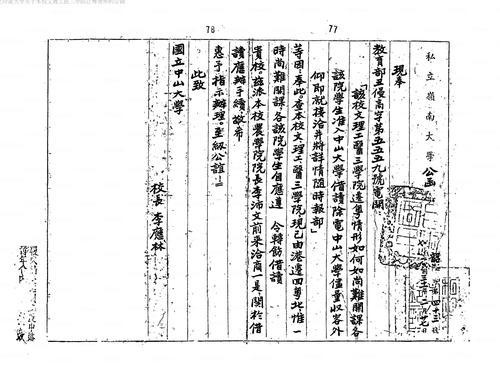 78
77
私立嶺南大學公函
現奉
教育部丑侵高字第五五五九號電開：
「該校文理工醫三學院遷粵情形如何如尚難開課各
該院學生准入中山大學借讀除電中山大學儘量收容外
仰即就接洽并將詳情隨時報部」
等因，奉此。查本校文理工醫三學院現已由港遷回粵北，惟一
時尚難開課，各該院學生自應遵　令轉飭借讀
貴校，茲派本校農學院院長李沛文前來洽商一是關於借
讀應辦手續，敬希
惠予指示辦理。至紉公誼！
此致
國立中山大學
校長　李應林